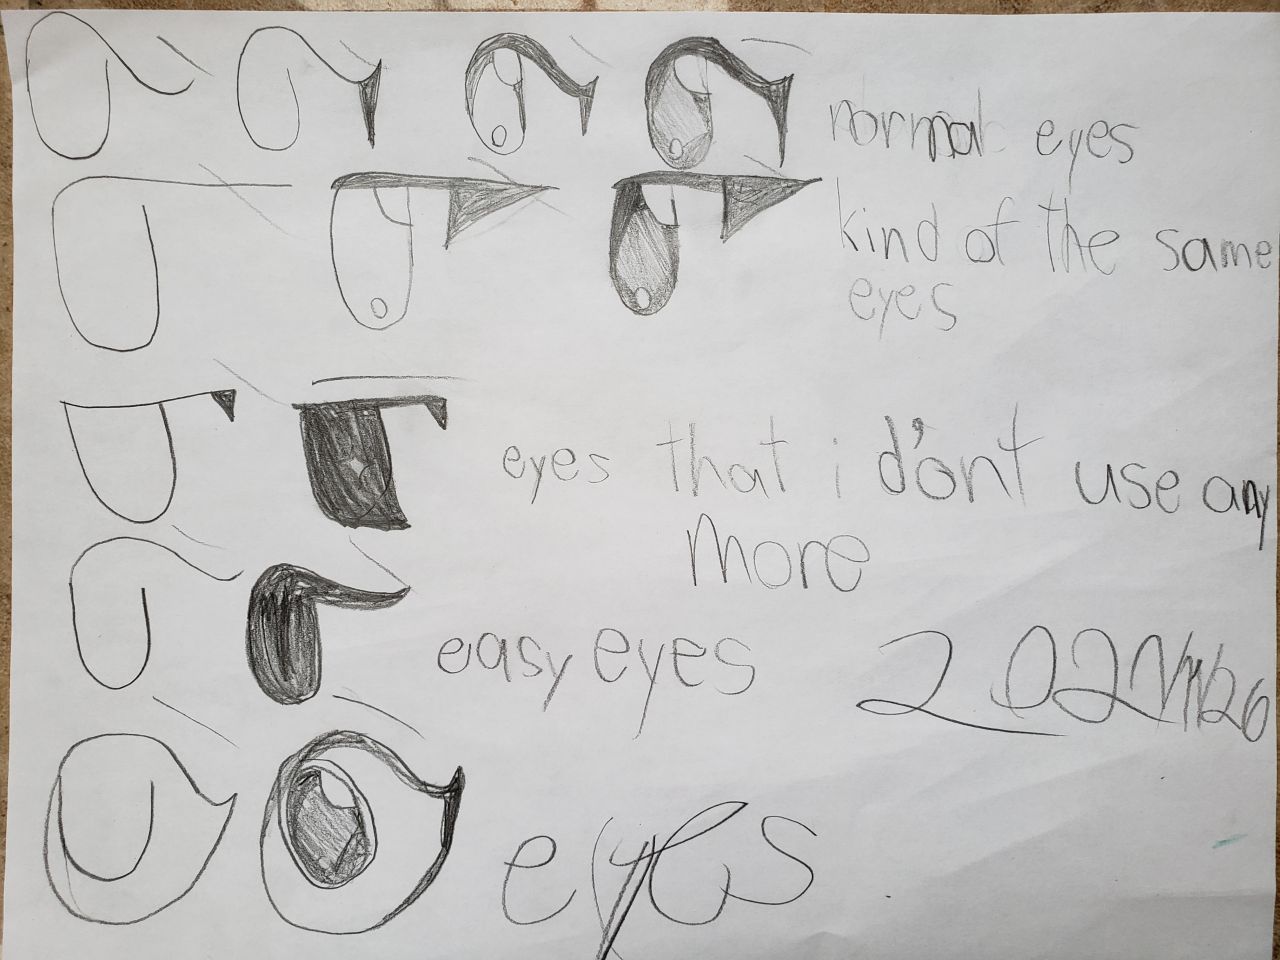 normal eyes
kind of the same
eyes
eyes that i d'ont use any
more
easy eyes
eyes